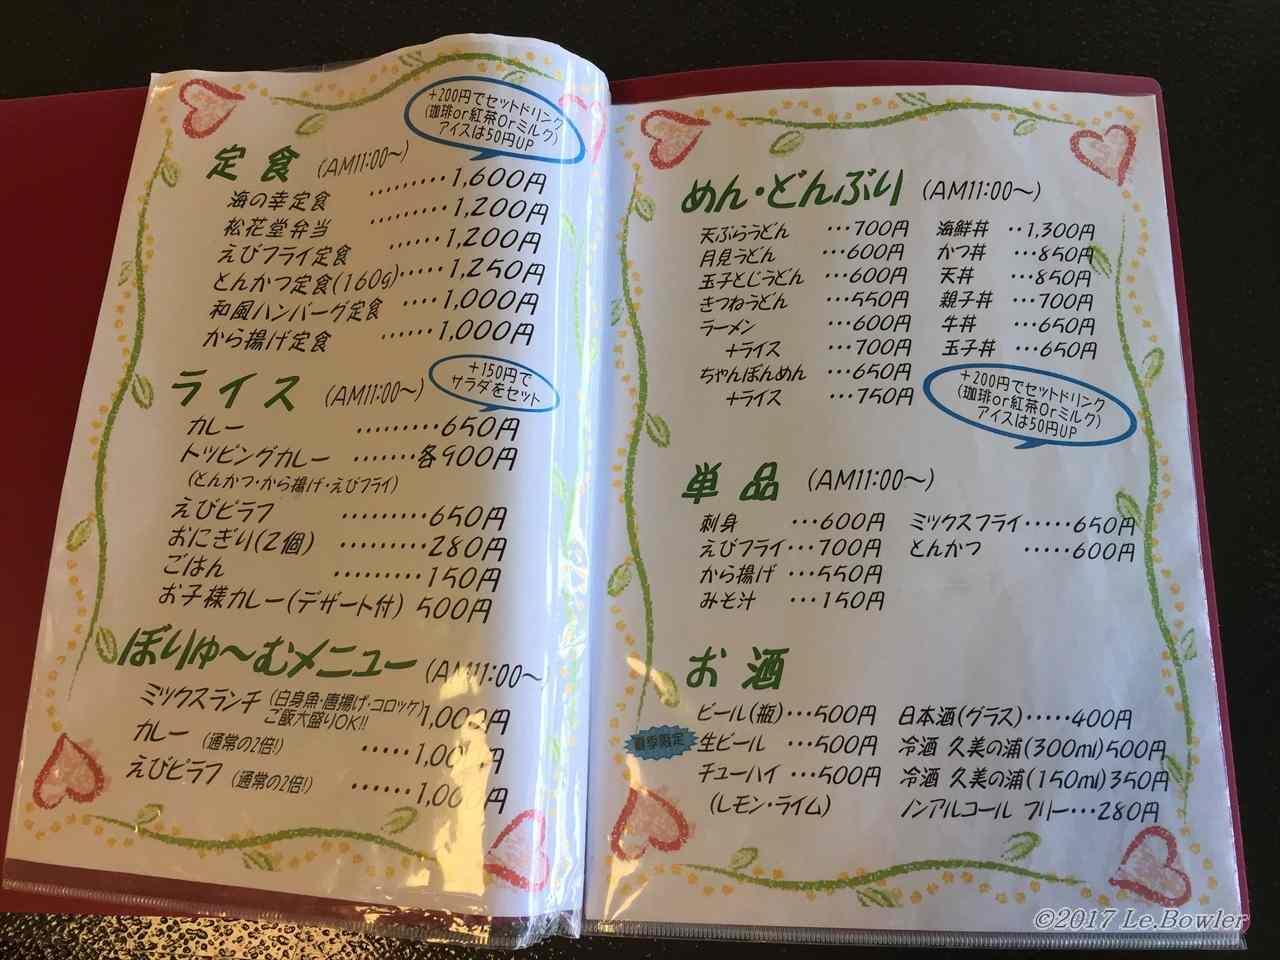 +200円でセットドリンク
(珈琲or紅茶Orミルク)
アイスは50円UP
定食 (AM11:00～)
海の幸定食 ………1,600円
松花堂弁当 ………1,200円
えびフライ定食 ……1,200円
とんかつ定食(160g)……1,250円
和風ハンバーグ定食 ……1,000円
から揚げ定食 ……1,000円
ライス (AM11:00～)
+150円で
サラダをセット
カレー ………650円
トッピングカレー ……各900円
(とんかつ・から揚げ・えびフライ)
えびピラフ ………650円
おにぎり(2個) ………280円
ごはん ………150円
お子様カレー(デザート付) 500円
ぼりゅ～むメニュー (AM11:00～
ミックスランチ (白身魚・唐揚げ・コロッケ) 1,000円
ご飯大盛りOK!!
カレー (通常の2倍!) ……1,000円
えびピラフ (通常の2倍!) ……1,000円
めん・どんぶり (AM11:00～)
天ぷらうどん …700円
月見うどん …600円
玉子とじうどん …600円
きつねうどん …550円
ラーメン …600円
+ライス …700円
ちゃんぽんめん …650円
+ライス …750円
海鮮丼 ‥1,300円
かつ丼 …850円
天丼 …850円
親子丼 …700円
牛丼 …650円
玉子丼 …650円
+200円でセットドリンク
(珈琲or紅茶Orミルク)
アイスは50円UP
単品 (AM11:00～)
刺身 …600円
えびフライ…700円
から揚げ …550円
みそ汁 …150円
ミックスフライ……650円
とんかつ ……600円
お酒
ビール(瓶)…500円
夏季限定 生ビール …500円
チューハイ …500円
(レモン・ライム)
日本酒(グラス)……400円
冷酒 久美の浦(300ml)500円
冷酒 久美の浦(150ml)350円
ノンアルコール フリー…280円
©2017 Le.Bowler